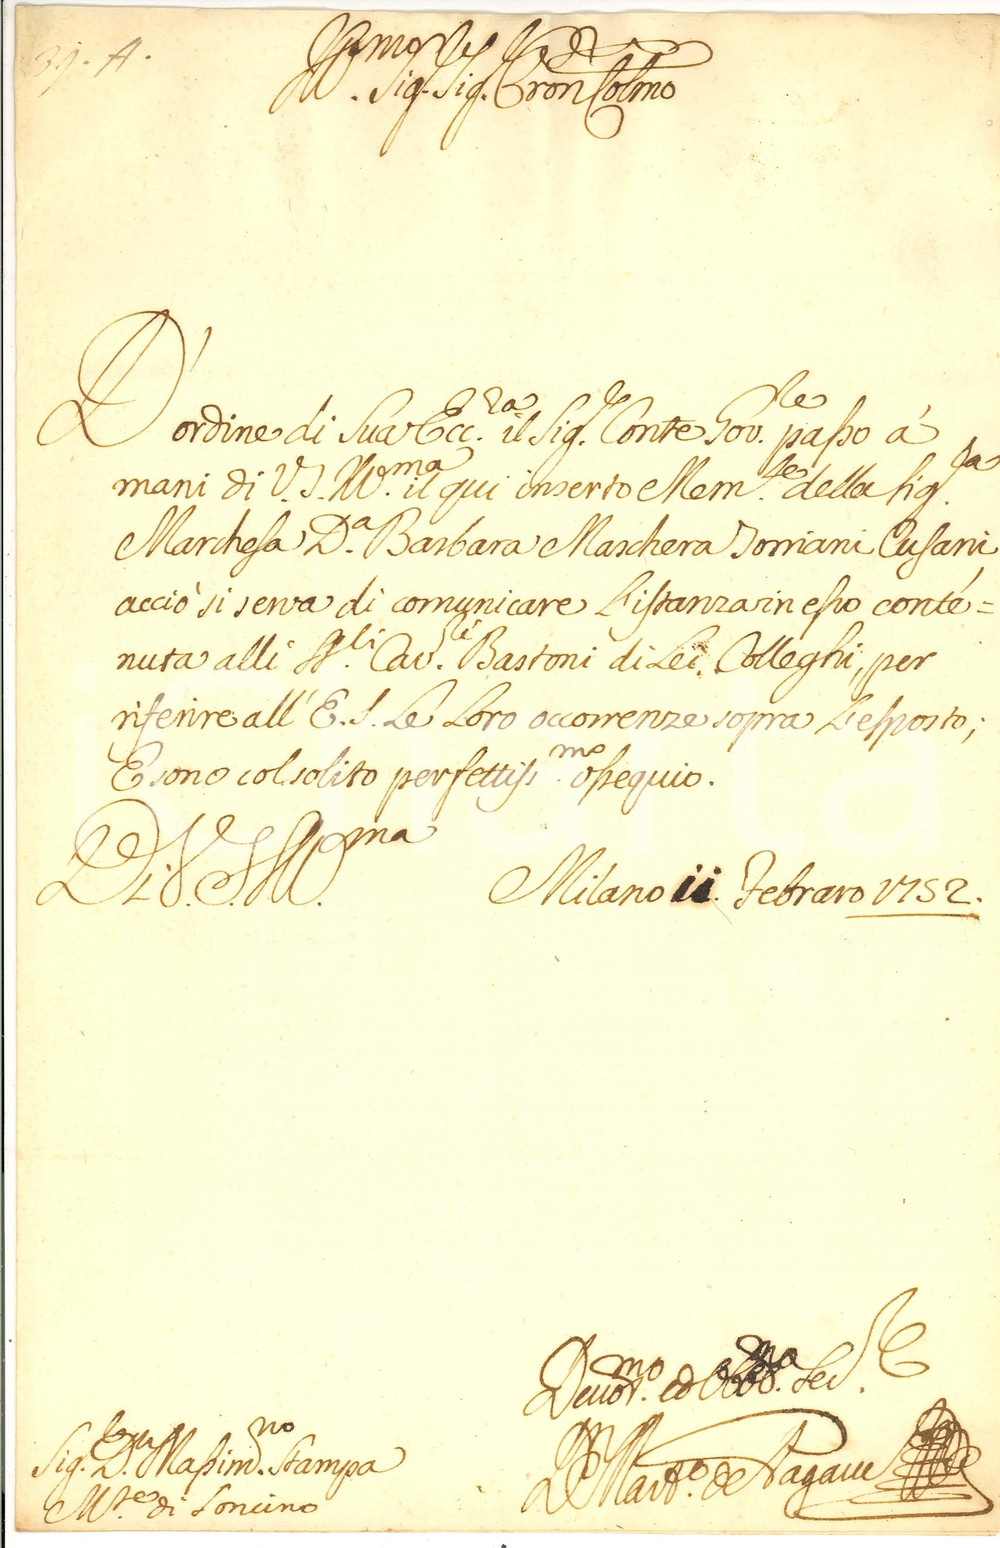 39. A.
Ill.mo Sig. Sig. Pron Colmo
D'ordine di Sua Ecc.za il Sig.r Conte Gov.le passo á
mani di V. S. Ill.ma il qui inserto Mem.le della Sig.ra
Marchesa D.a Barbara Maschera Torriani Cusani,
acciò si serva di comunicare l'istanza in esso conte=
nuta alli SS.li Cav.li Bastoni di Lei Colleghi, per
riferire all' E. S. le loro occorrenze sopra l'esposto;
E sono col solito perfettiss.mo ossequio.
Di V. S. Ill.ma
Milano 11. Febraro 1752.
Devot.mo ed Obb.mo Ser.
D. Mart.o de Pagave
Sig. D. Massim.no Stampa
M.se di Soncino